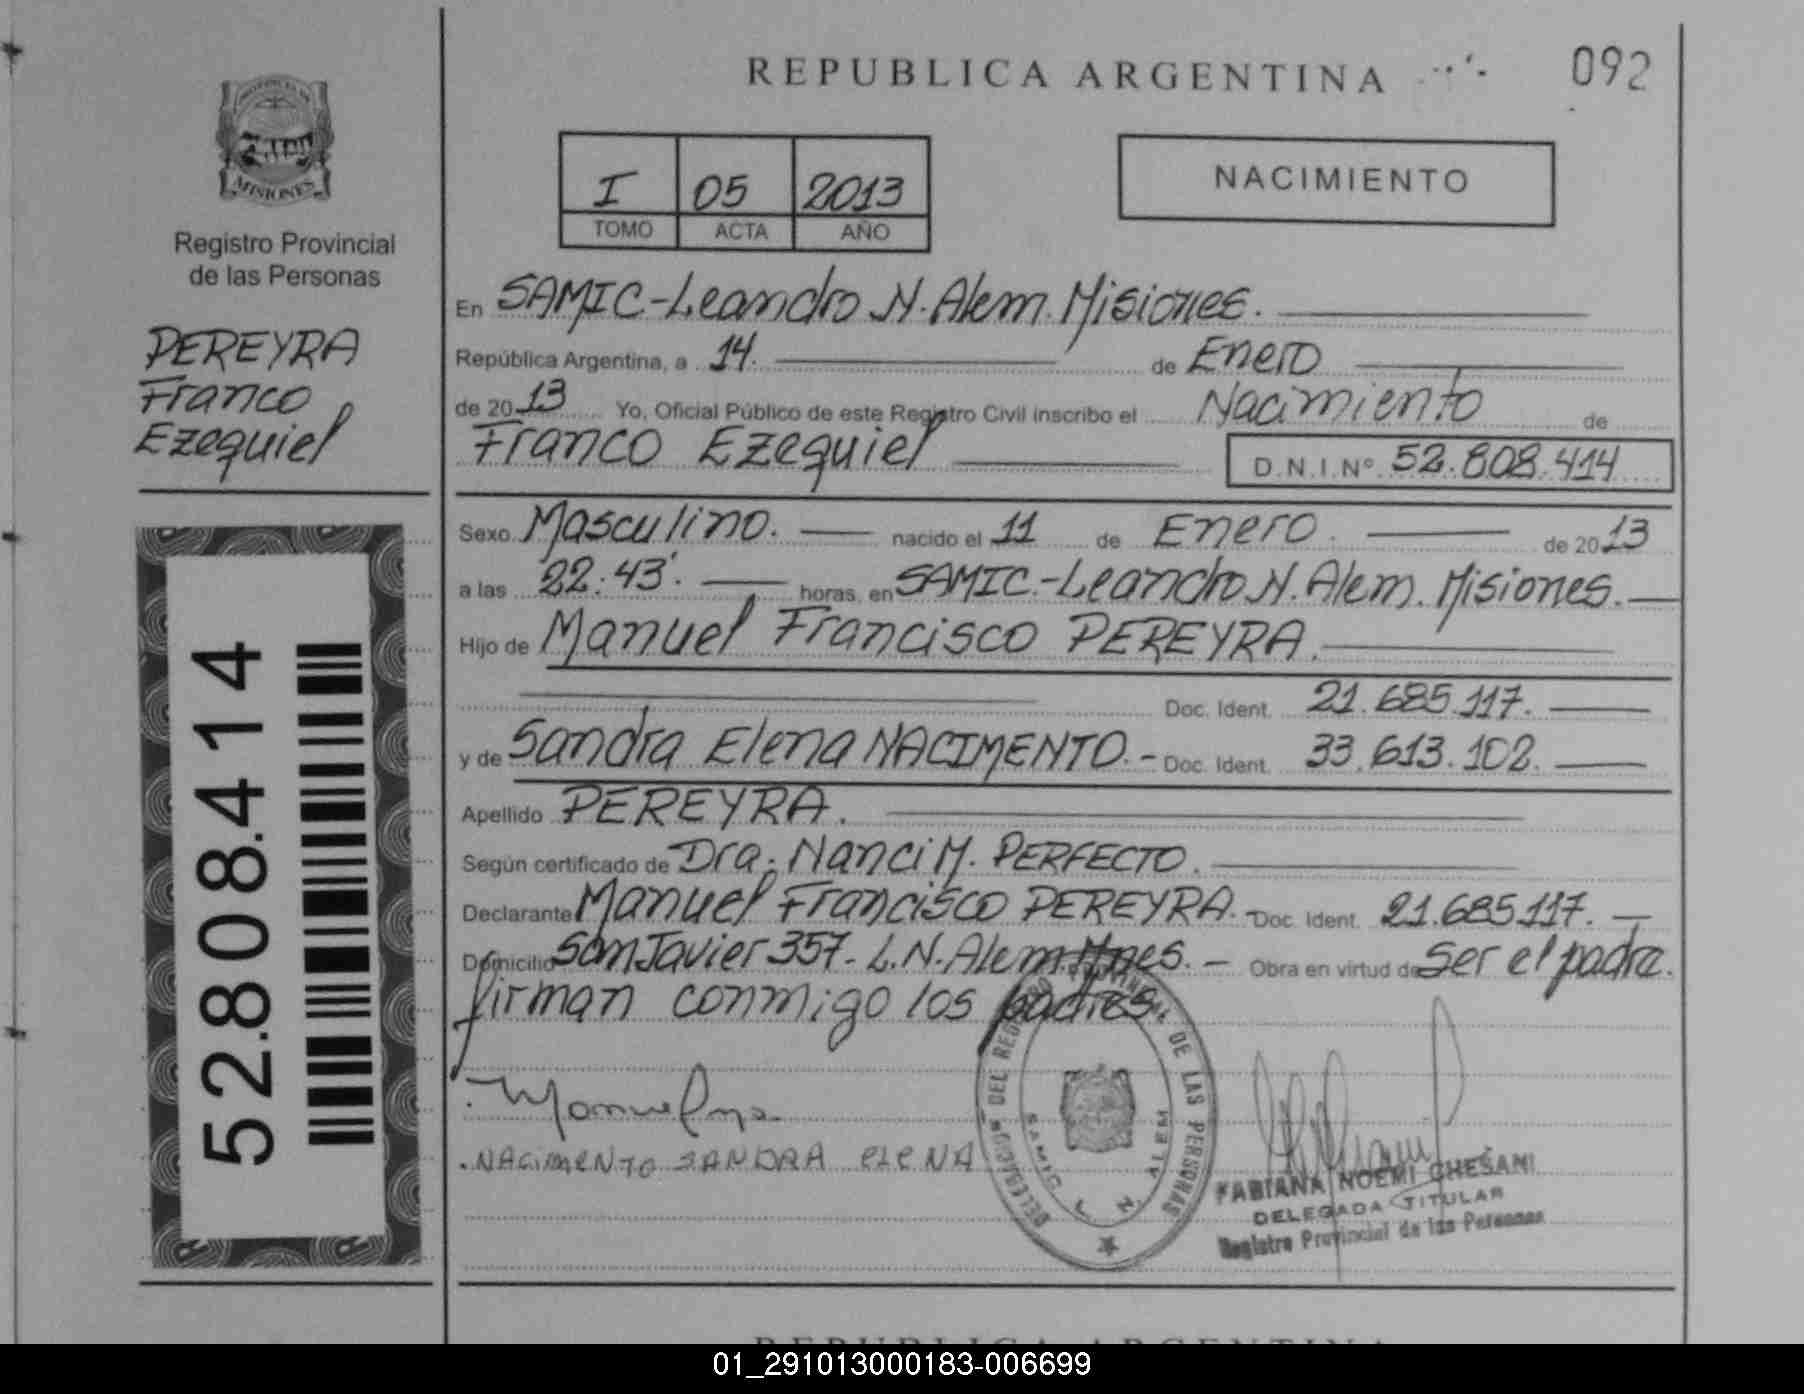 REPUBLICA ARGENTINA
092
PROVINCIA DE
MISIONES
Registro Provincial
de las Personas
PEREYRA
Franco
Ezequiel
52.808.414
I 05 2013
TOMO ACTA AÑO
NACIMIENTO
En SAMIC-Leandro N. Alem. Misiones.
República Argentina, a 14. de Enero
de 20 13 Yo, Oficial Público de este Registro Civil inscribo el Nacimiento de
Franco Ezequiel D.N.I.Nº 52.808.414
Sexo Masculino. nacido el 11 de Enero. de 20 13
a las 22:43'. horas, en SAMIC.-Leandro N. Alem. Misiones.
Hijo de Manuel Francisco PEREYRA.
Doc. Ident. 21.685.117.
y de Sandra Elena NACIMENTO.- Doc. Ident. 33.613.102.
Apellido PEREYRA.
Según certificado de Dra. Nanci M. PERFECTO.
Declarante Manuel Francisco PEREYRA.- Doc. Ident. 21.685.117.
Domicilio San Javier 357- L.N. Alem. Mnes.- Obra en virtud de Ser el padre.
firman conmigo los padres
NACIMENTO SANDRA ELENA
DELEGACION DEL REGISTRO PROVINCIAL DE LAS PERSONAS
SAMIC L. N. ALEM
FABIANA NOEMI CHESANI
DELEGADA TITULAR
Registro Provincial de las Personas
REPUBLICA ARGENTINA
01_291013000183-006699